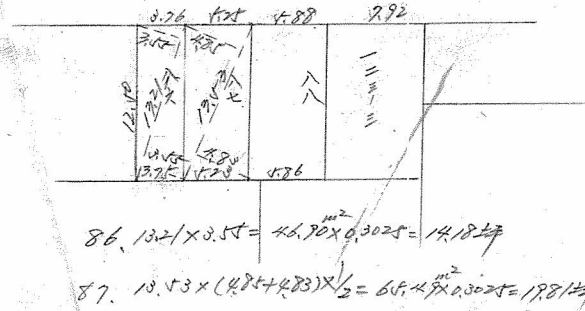 3.76 5.25 5.88 7.92
3.55 4.85
12.40 13.21 八六 13.53 八七 八八 一二三-三
3.55 4.83
3.75 5.23 5.86
86. 13.21×3.55= 46.90m²×0.3025= 14.18坪
87. 13.53×(4.85+4.83)×1/2= 65.49m²×0.3025= 19.81坪